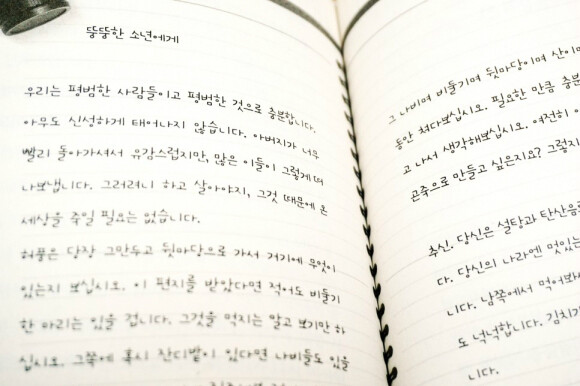 뚱뚱한 소년에게
우리는 평범한 사람들이고 평범한 것으로 충분합니다.
아무도 신성하게 태어나지 않습니다. 아버지가 너무
빨리 돌아가셔서 유감스럽지만, 많은 이들이 그렇게 떠
나보냅니다. 그러려니 하고 살아야지, 그것 때문에 온
세상을 죽일 필요는 없습니다.
허풍은 당장 그만두고 뒷마당으로 가서 거기에 무엇이
있는지 보십시오. 이 편지를 받았다면 적어도 비둘기
한 마리는 있을 겁니다. 그것을 먹지는 말고 보기만 하
십시오. 그쪽에 혹시 잔디밭이 있다면 나비들도 있을
그 나비며 비둘기며 뒷마당이며 산이며
동안 쳐다보십시오. 필요한 만큼 충분
고 나서 생각해보십시오. 여전히
곤죽으로 만들고 싶은지요? 그렇지
추신. 당신은 설탕과 탄산음료
다. 당신의 나라엔 멋있는
니다. 남쪽에서 먹어보
도 넉넉합니다. 김치가
니다.